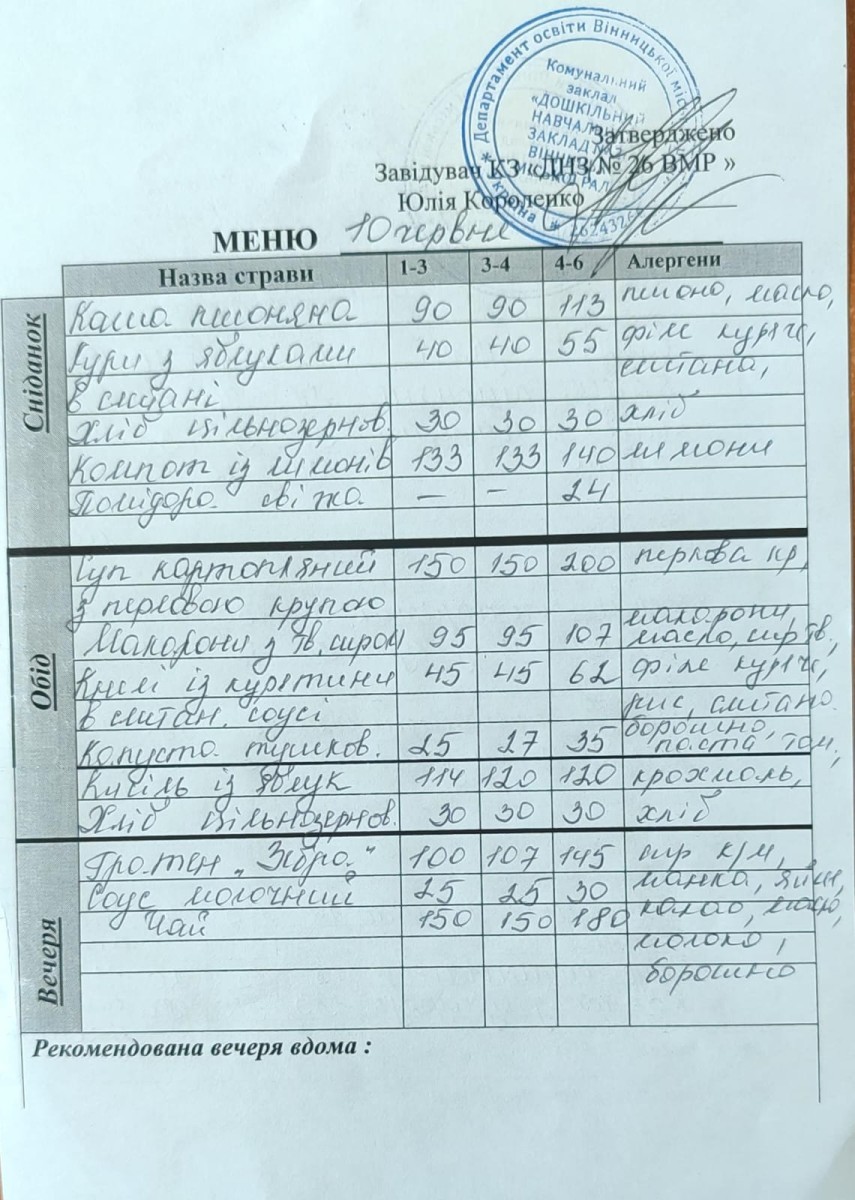 Департамент освіти Вінницької міс
Комунальний
заклад
«ДОШКІЛЬНИЙ
НАВЧАЛ
ЗАКЛАД №
Затверджено
Завідувач КЗ «ДНЗ № 26 ВМР »
Юлія Короленко
МЕНЮ 10 червня
Назва страви 1-3 3-4 4-6 Алергени
Сніданок
Каша пшоняна 90 90 113 пшоно, масло,
Кури з яблуками 40 40 55 філе куряче,
в сметані сметана,
Хліб цільнозернов. 30 30 30 хліб
Компот із лимонів 133 133 140 лимони
Помідора свіжа — — 24
Обід
Суп картопляний 150 150 200 перлова кр,
з перловою крупою
Макарони з тв, сиром 95 95 107 макарони, масло, сир тв.,
Кнелі із курятини 45 45 62 філе куряче,
в сметан. соусі рис, сметана.
Капуста тушков. 25 27 35 борошно, паста том,
Кисіль із яблук 114 120 120 крохмаль,
Хліб цільнозернов. 30 30 30 хліб
Вечеря
Гратен „Зебра" 100 107 145 сир к/м,
Соус молочний 25 25 30 манка, яйце,
Чай 150 150 180 какао, масло,
молоко,
борошно
Рекомендована вечеря вдома :